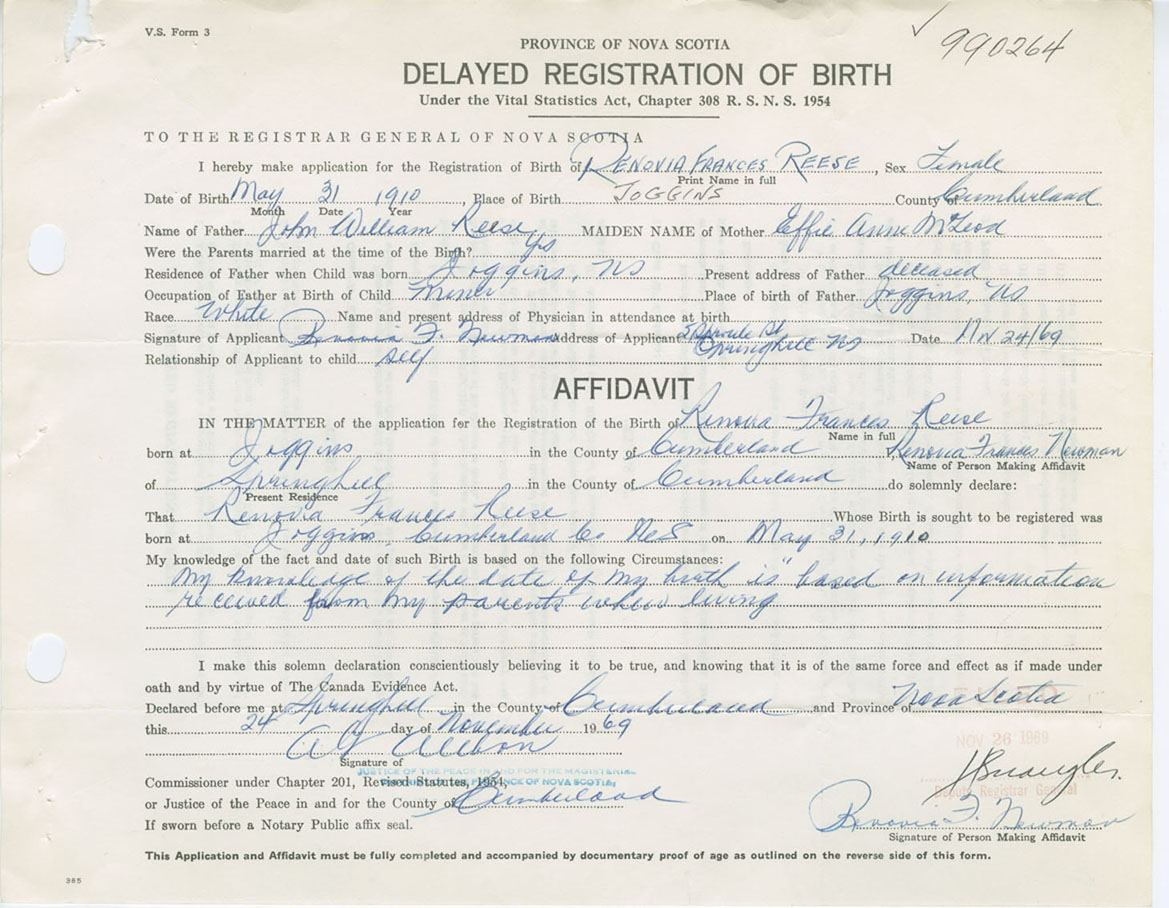 V.S. Form 3
990264
PROVINCE OF NOVA SCOTIA
DELAYED REGISTRATION OF BIRTH
Under the Vital Statistics Act, Chapter 308 R. S. N. S. 1954
TO THE REGISTRAR GENERAL OF NOVA SCOTIA
I hereby make application for the Registration of Birth of RENOVIA FRANCES REESE, Sex Female
Print Name in full
Date of Birth May 31 1910, Place of Birth JOGGINS County of Cumberland
Month Date Year
Name of Father John William Reese MAIDEN NAME of Mother Effie Anne McLeod
Were the Parents married at the time of the Birth? yes
Residence of Father when Child was born Joggins, NS Present address of Father deceased
Occupation of Father at Birth of Child Miner Place of birth of Father Joggins, NS
Race White Name and present address of Physician in attendance at birth
Signature of Applicant Renovia F. Newman Address of Applicant St Springhill NS Date Nov 24/69
Relationship of Applicant to child self
AFFIDAVIT
IN THE MATTER of the application for the Registration of the Birth of Renovia Frances Reese
Name in full
born at Joggins in the County of Cumberland, Renovia Frances Newman
Name of Person Making Affidavit
of Springhill in the County of Cumberland do solemnly declare:
Present Residence
That Renovia Frances Reese Whose Birth is sought to be registered was
born at Joggins, Cumberland Co N.S on May 31, 1910
My knowledge of the fact and date of such Birth is based on the following Circumstances:
My knowledge of the date of my birth is based on information
received from my parents when living
I make this solemn declaration conscientiously believing it to be true, and knowing that it is of the same force and effect as if made under
oath and by virtue of The Canada Evidence Act.
Declared before me at Springhill in the County of Cumberland and Province of Nova Scotia
this 24 day of November 1969
NOV 26 1969
Signature of
JUSTICE OF THE PEACE IN AND FOR THE MAGISTERIAL
PROVINCE OF NOVA SCOTIA
Commissioner under Chapter 201, Revised Statutes, 1954,
Deputy Registrar General
or Justice of the Peace in and for the County of Cumberland
Renovia F. Newman
If sworn before a Notary Public affix seal.
Signature of Person Making Affidavit
This Application and Affidavit must be fully completed and accompanied by documentary proof of age as outlined on the reverse side of this form.
385